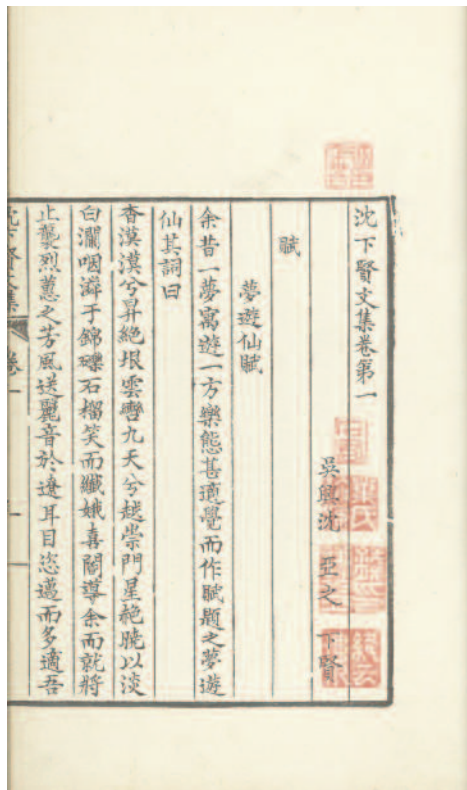 沈下賢文集卷第一
吳興沈 亞之 下賢
賦
夢遊仙賦
余昔一夢寓遊一方樂態甚適覺而作賦題之夢遊
仙其詞曰
杳漠漠兮昇絶垠雲轡九天兮越崇門星艳曉以淡
白瀾咽濟于錦礫石榴笑而纖娥喜閽導余而就將
止襲烈蕙之芳風送麗音於遼耳目恣邁而多適吾
沈下賢文集 卷一 一